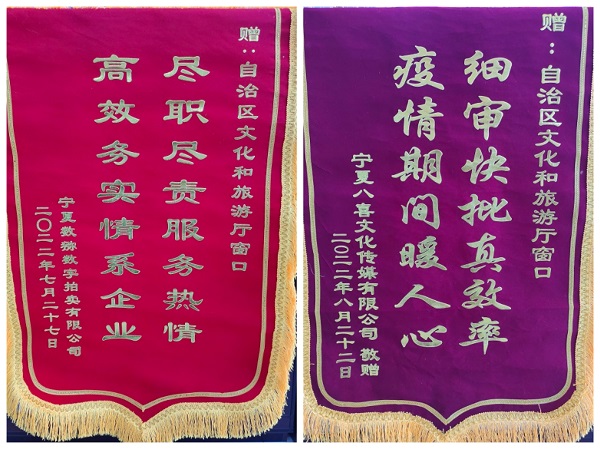 赠：自治区文化和旅游厅窗口
尽职尽责服务热情
高效务实情系企业
宁夏数 数字拍卖有限公司
二〇二二年七月二十七日
赠：自治区文化和旅游厅窗口
细审快批真效率
疫情期间暖人心
宁夏八喜文化传媒有限公司 敬赠
二〇二二年八月二十二日